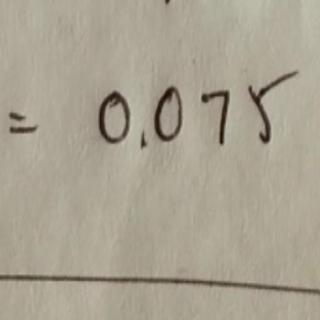 = 0.075